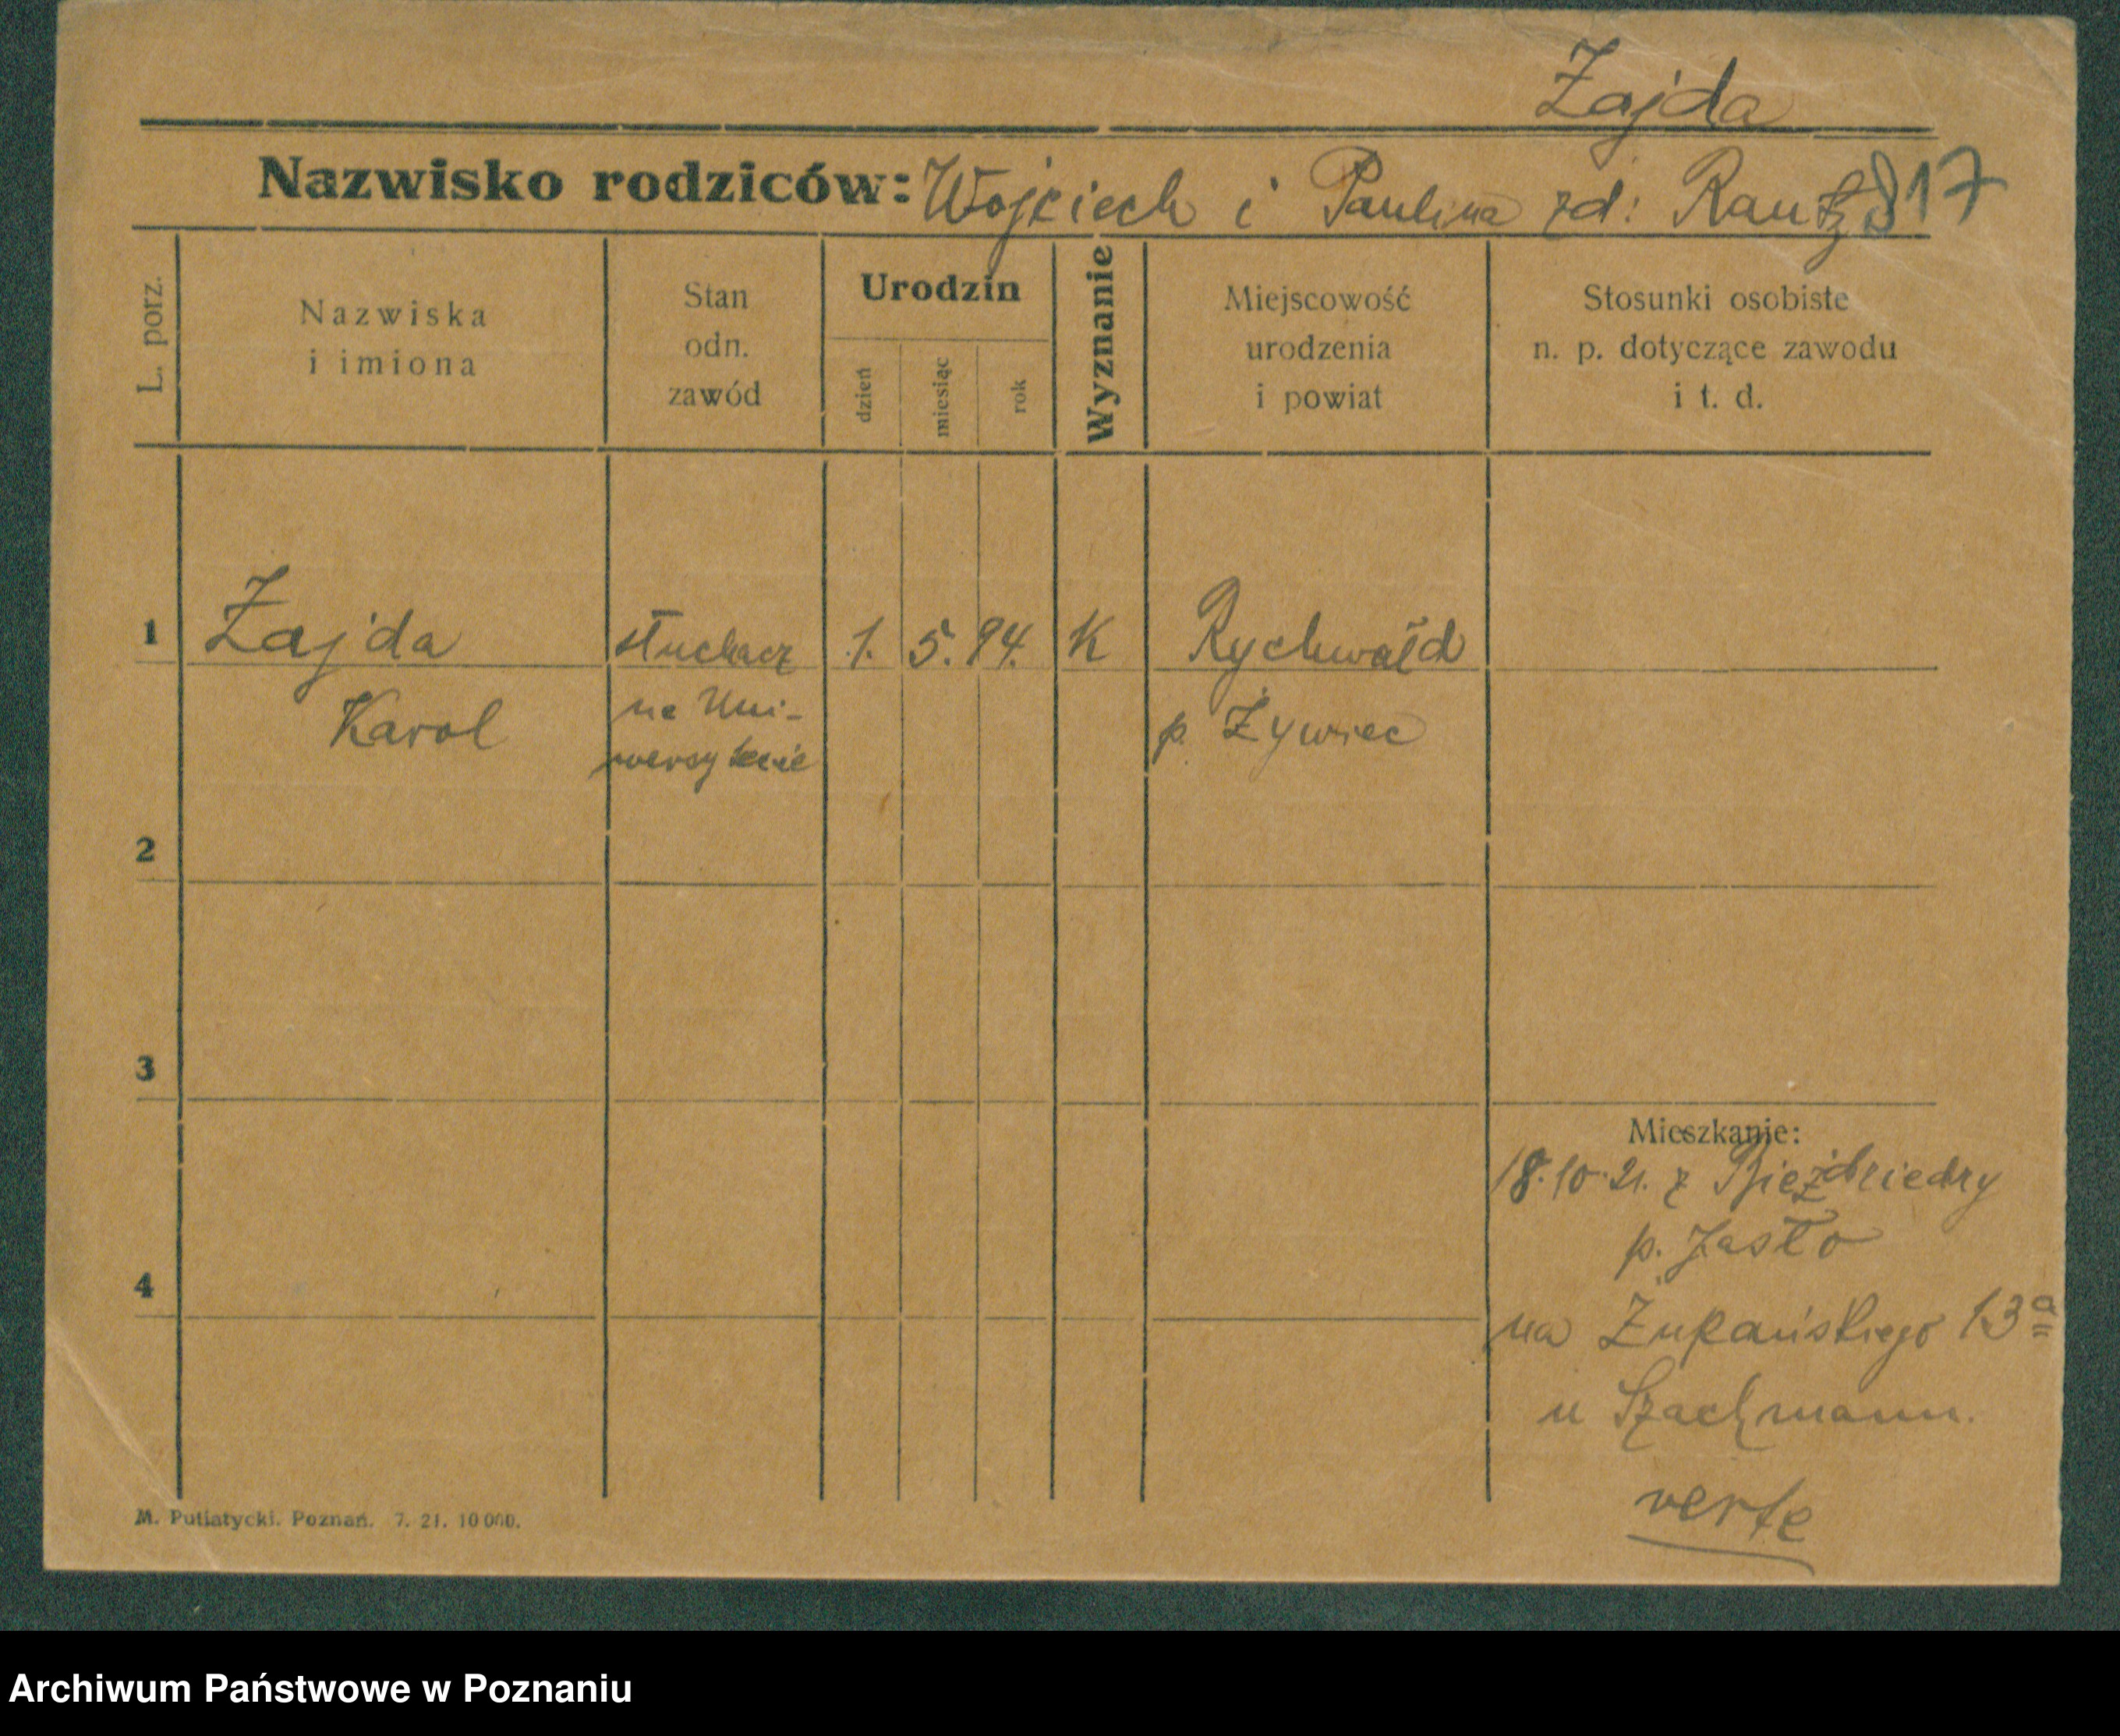 Zajda
Nazwisko rodziców: Wojciech i Paulina zd: Rautz 817
L. porz.
Nazwiska
i imiona
Stan
odn.
zawód
Urodzin
dzień
miesiąc
rok
Wyznanie
Miejscowość
urodzenia
i powiat
Stosunki osobiste
n. p. dotyczące zawodu
i t. d.
1 Zajda słuchacz 1. 5. 94. K Rychwałd
Karol na Uni- p. Żywiec
wersytecie
2
3
Mieszkanie:
18.10.21. z
p. Jasło
4
na Żupańskiego 13a
u Szachmann.
verte
M. Putiatycki. Poznań. 7. 21. 10 000.
Archiwum Państwowe w Poznaniu